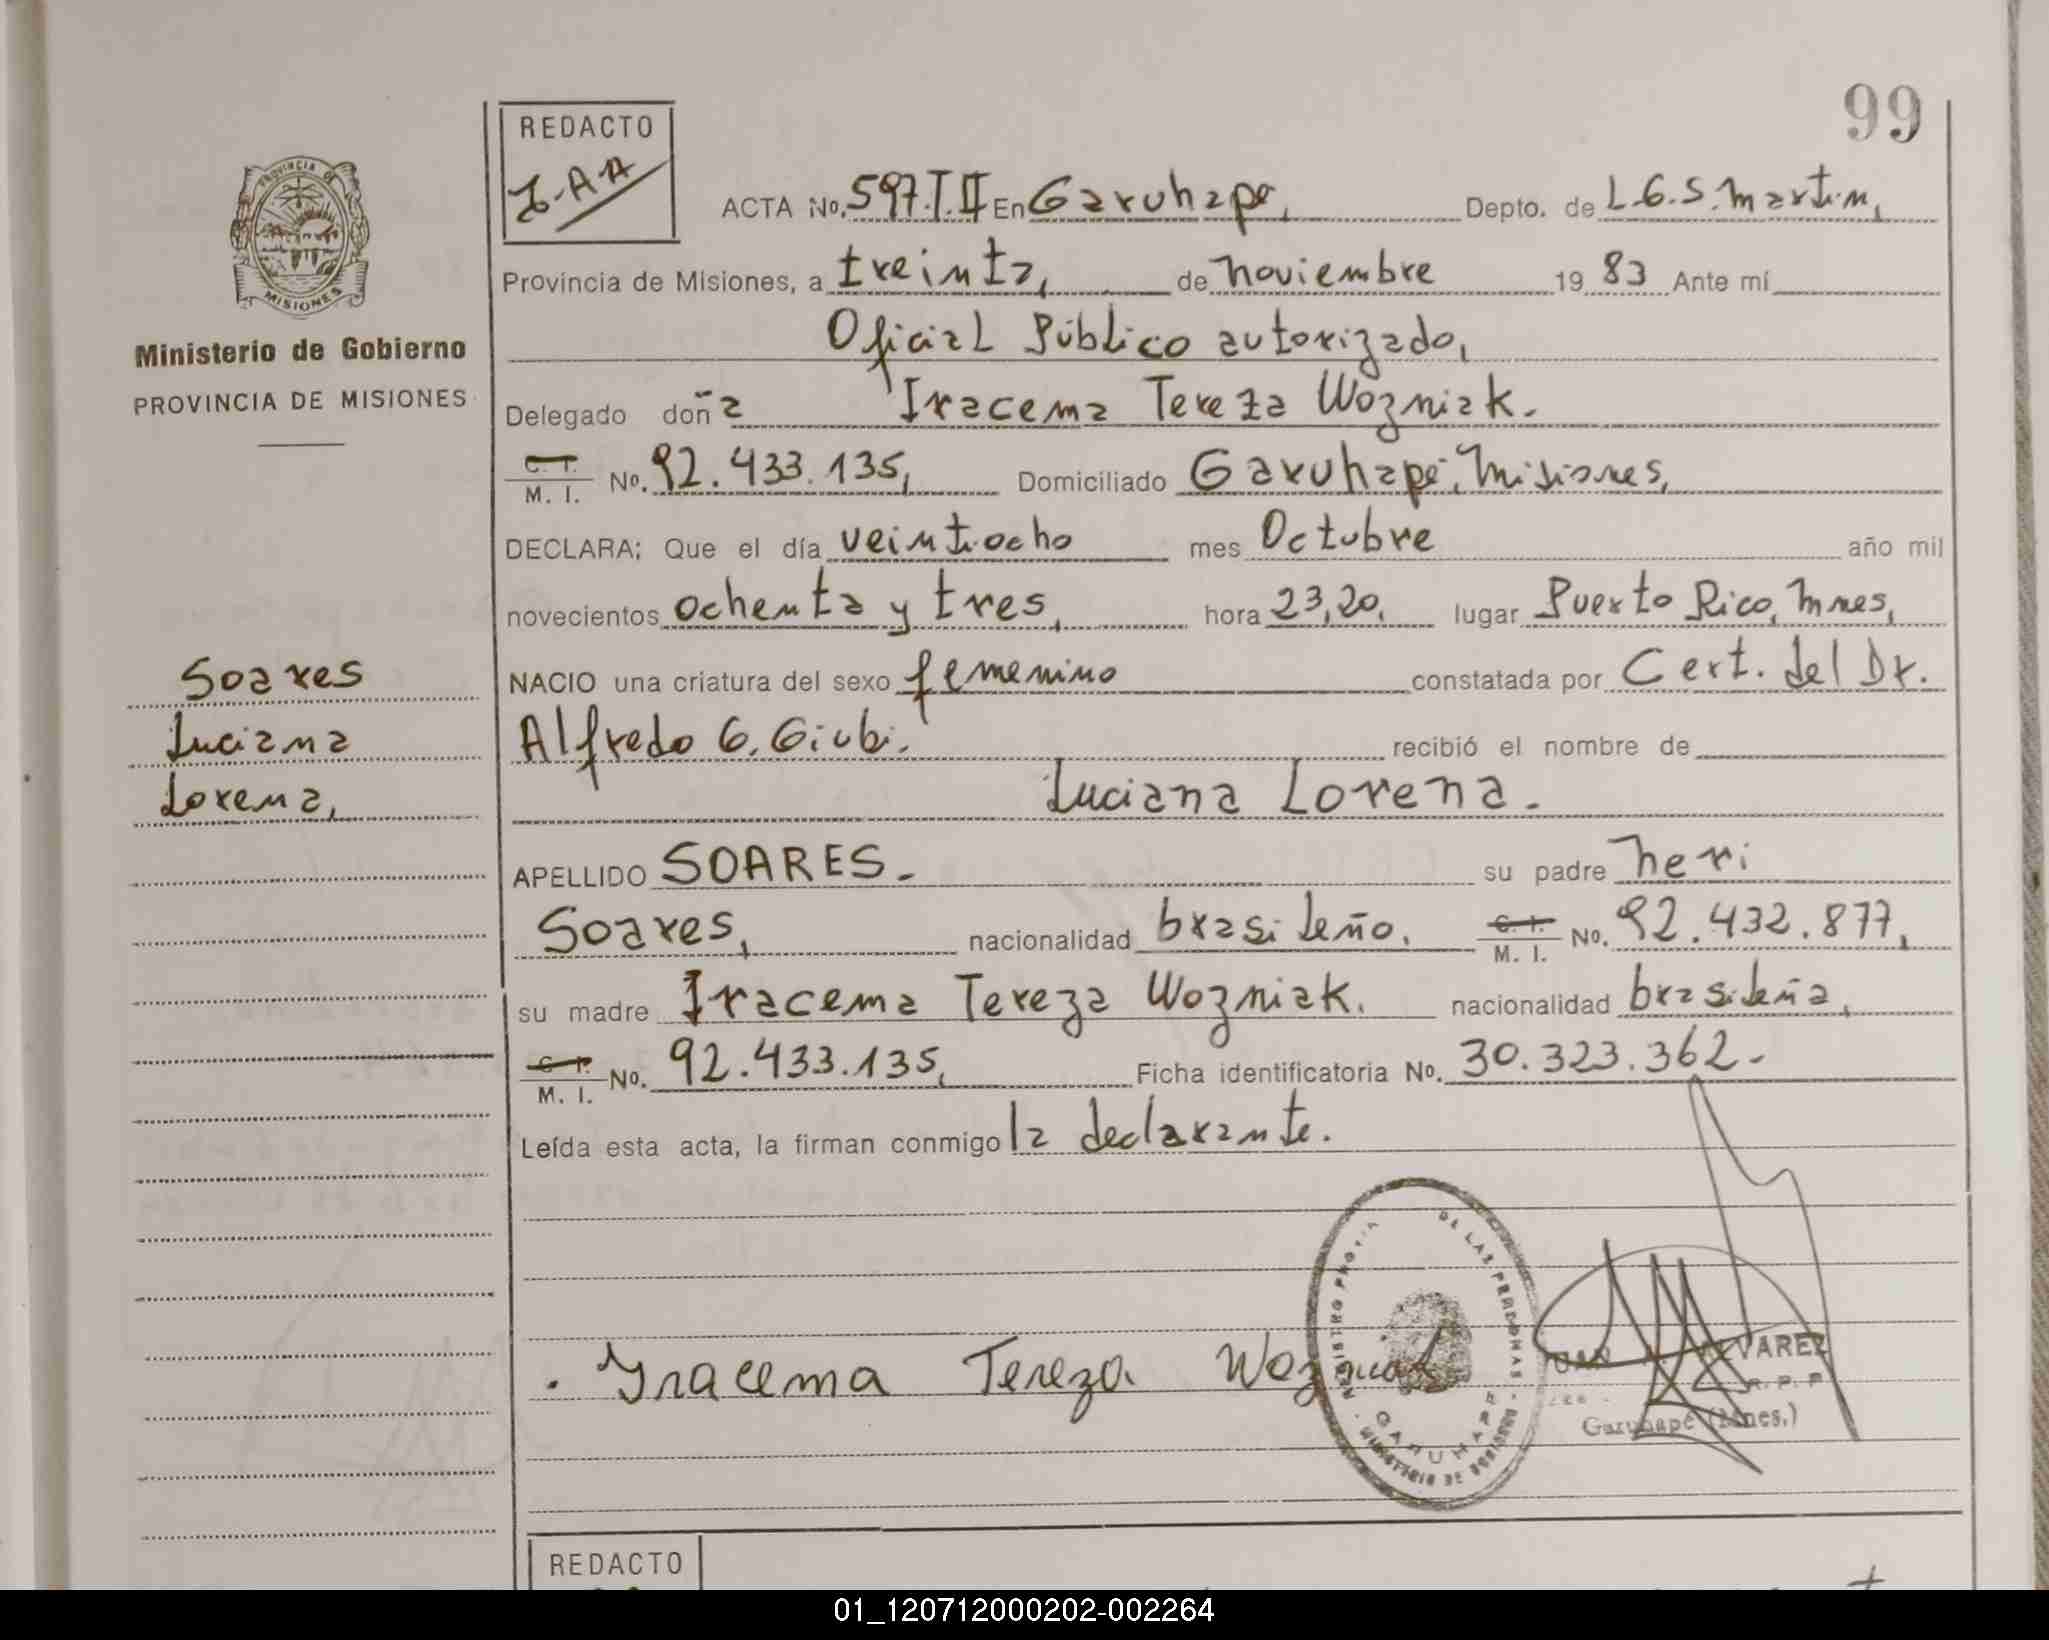 99
REDACTO
J-AA
PROVINCIA DE
MISIONES
Ministerio de Gobierno
PROVINCIA DE MISIONES
ACTA No. 597.T.II En Garuhape, Depto. de L.G.S. martin,
Provincia de Misiones, a treinta, de noviembre 19 83 Ante mí
Oficial Público autorizado,
Delegado doña Iracema Tereza Wozniak.
C. I. M. I. No. 92.433.135, Domiciliado Garuhapé, misiones,
DECLARA; Que el día veintiocho mes Octubre año mil
novecientos ochenta y tres, hora 23,20, lugar Puerto Rico, mnes,
NACIO una criatura del sexo femenino constatada por Cert. del Dr.
Alfredo G. Giubi. recibió el nombre de
Luciana Lorena.
Soares
Luciana
Lorena,
APELLIDO SOARES. su padre neri
Soares, nacionalidad brasileño, C. I. M. I. No. 92.432.877,
su madre Iracema Tereza Wozniak. nacionalidad brasileña,
C. I. M. I. No. 92.433.135, Ficha identificatoria No. 30.323.362-
Leída esta acta, la firman conmigo la declarante.
Iracema Tereza Wozniak
DE LAS PERSONAS
GARUHAPE
MINISTERIO DE GOBIERNO
VAREZ
R. P. P
Garuhapé (Mnes.)
REDACTO
01_120712000202-002264